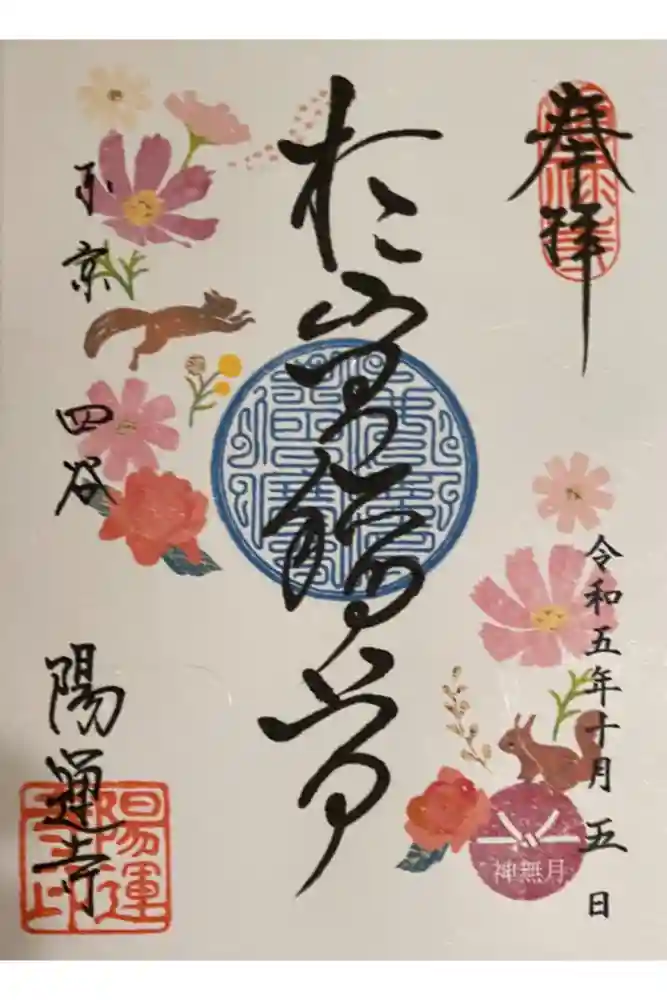 奉拝
令和五年十月五日
神無月
於岩稲荷
東京四谷
陽運寺
陽運寺印